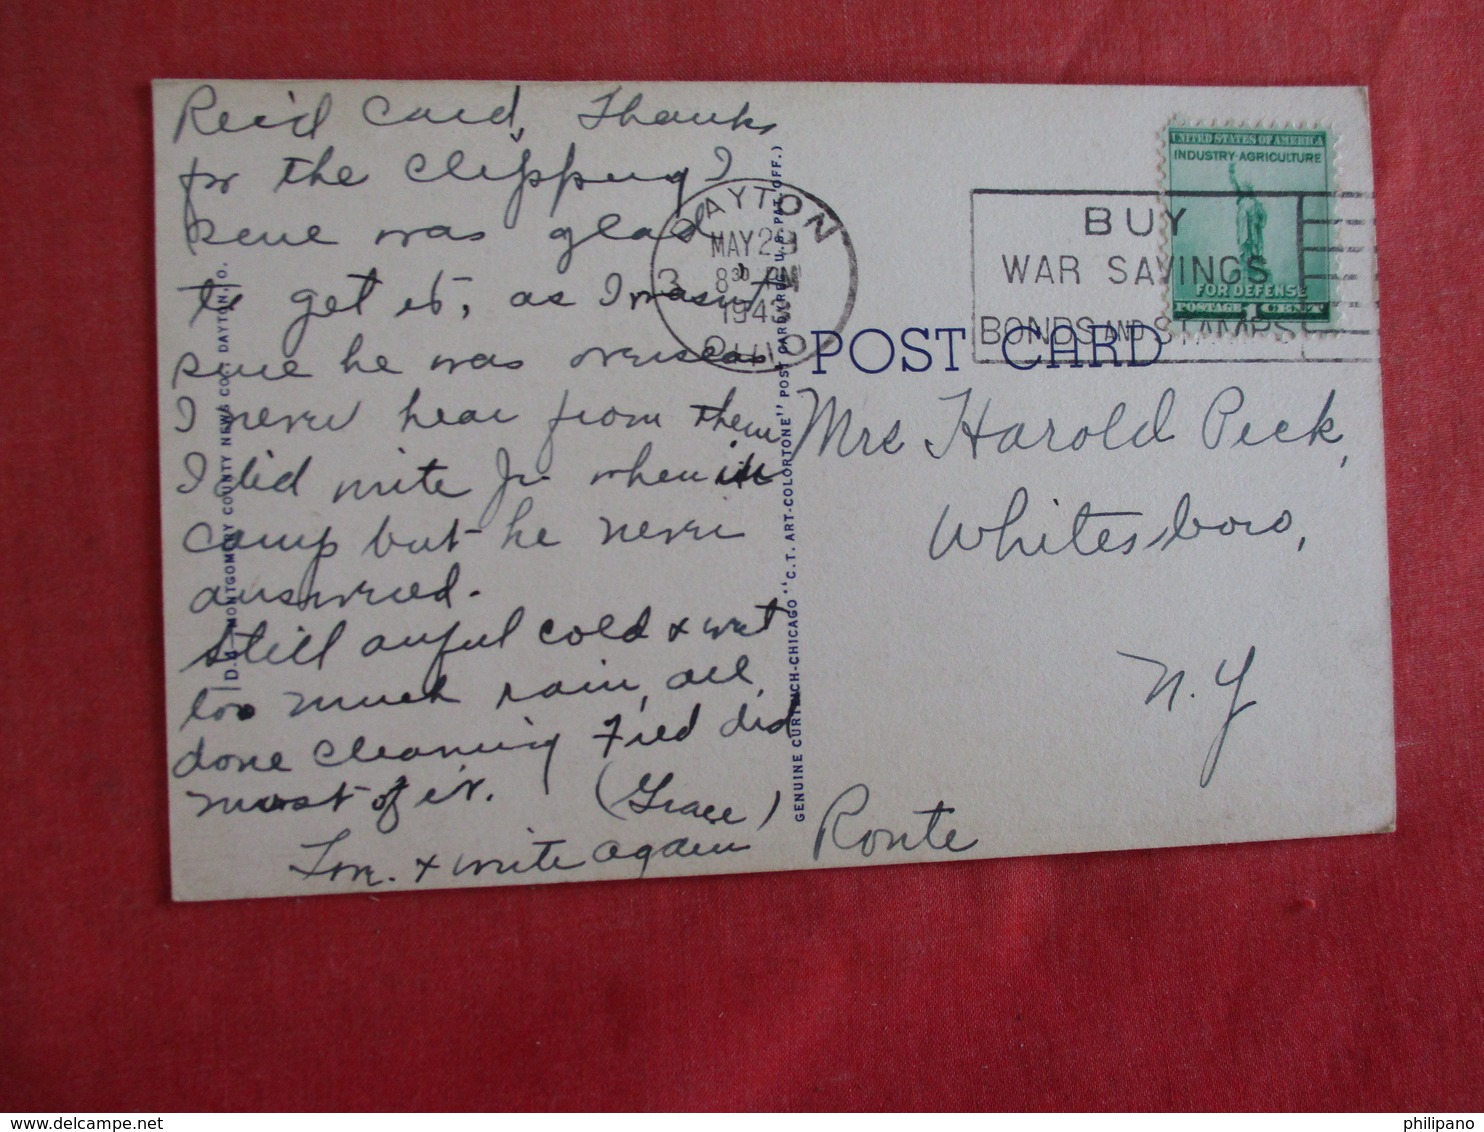 Rec'd Card, Thanks
for the Clipping I
sure was glad
to get it, as I wasn't
sure he was overseas
I never hear from them
I did write Jr. when in
Camp but he never
answered.
Still awful cold & wet
too much rain, all
done cleaning Fred did
most of it. (Grace)
Love. & write again
D-4 MONTGOMERY COUNTY NEWS CO., DAYTON, O.
GENUINE CURTEICH-CHICAGO "C.T. ART-COLORTONE" POST CARD (REG. U.S. PAT. OFF.)
DAYTON
MAY 29
8 30 PM
1943
OHIO
3
BUY
WAR SAVINGS
BONDS AND STAMPS
UNITED STATES OF AMERICA
INDUSTRY·AGRICULTURE
FOR DEFENSE
POSTAGE 1 CENT
POST CARD
Mrs Harold Peck,
Whitesboro,
N.Y
Route
philipano